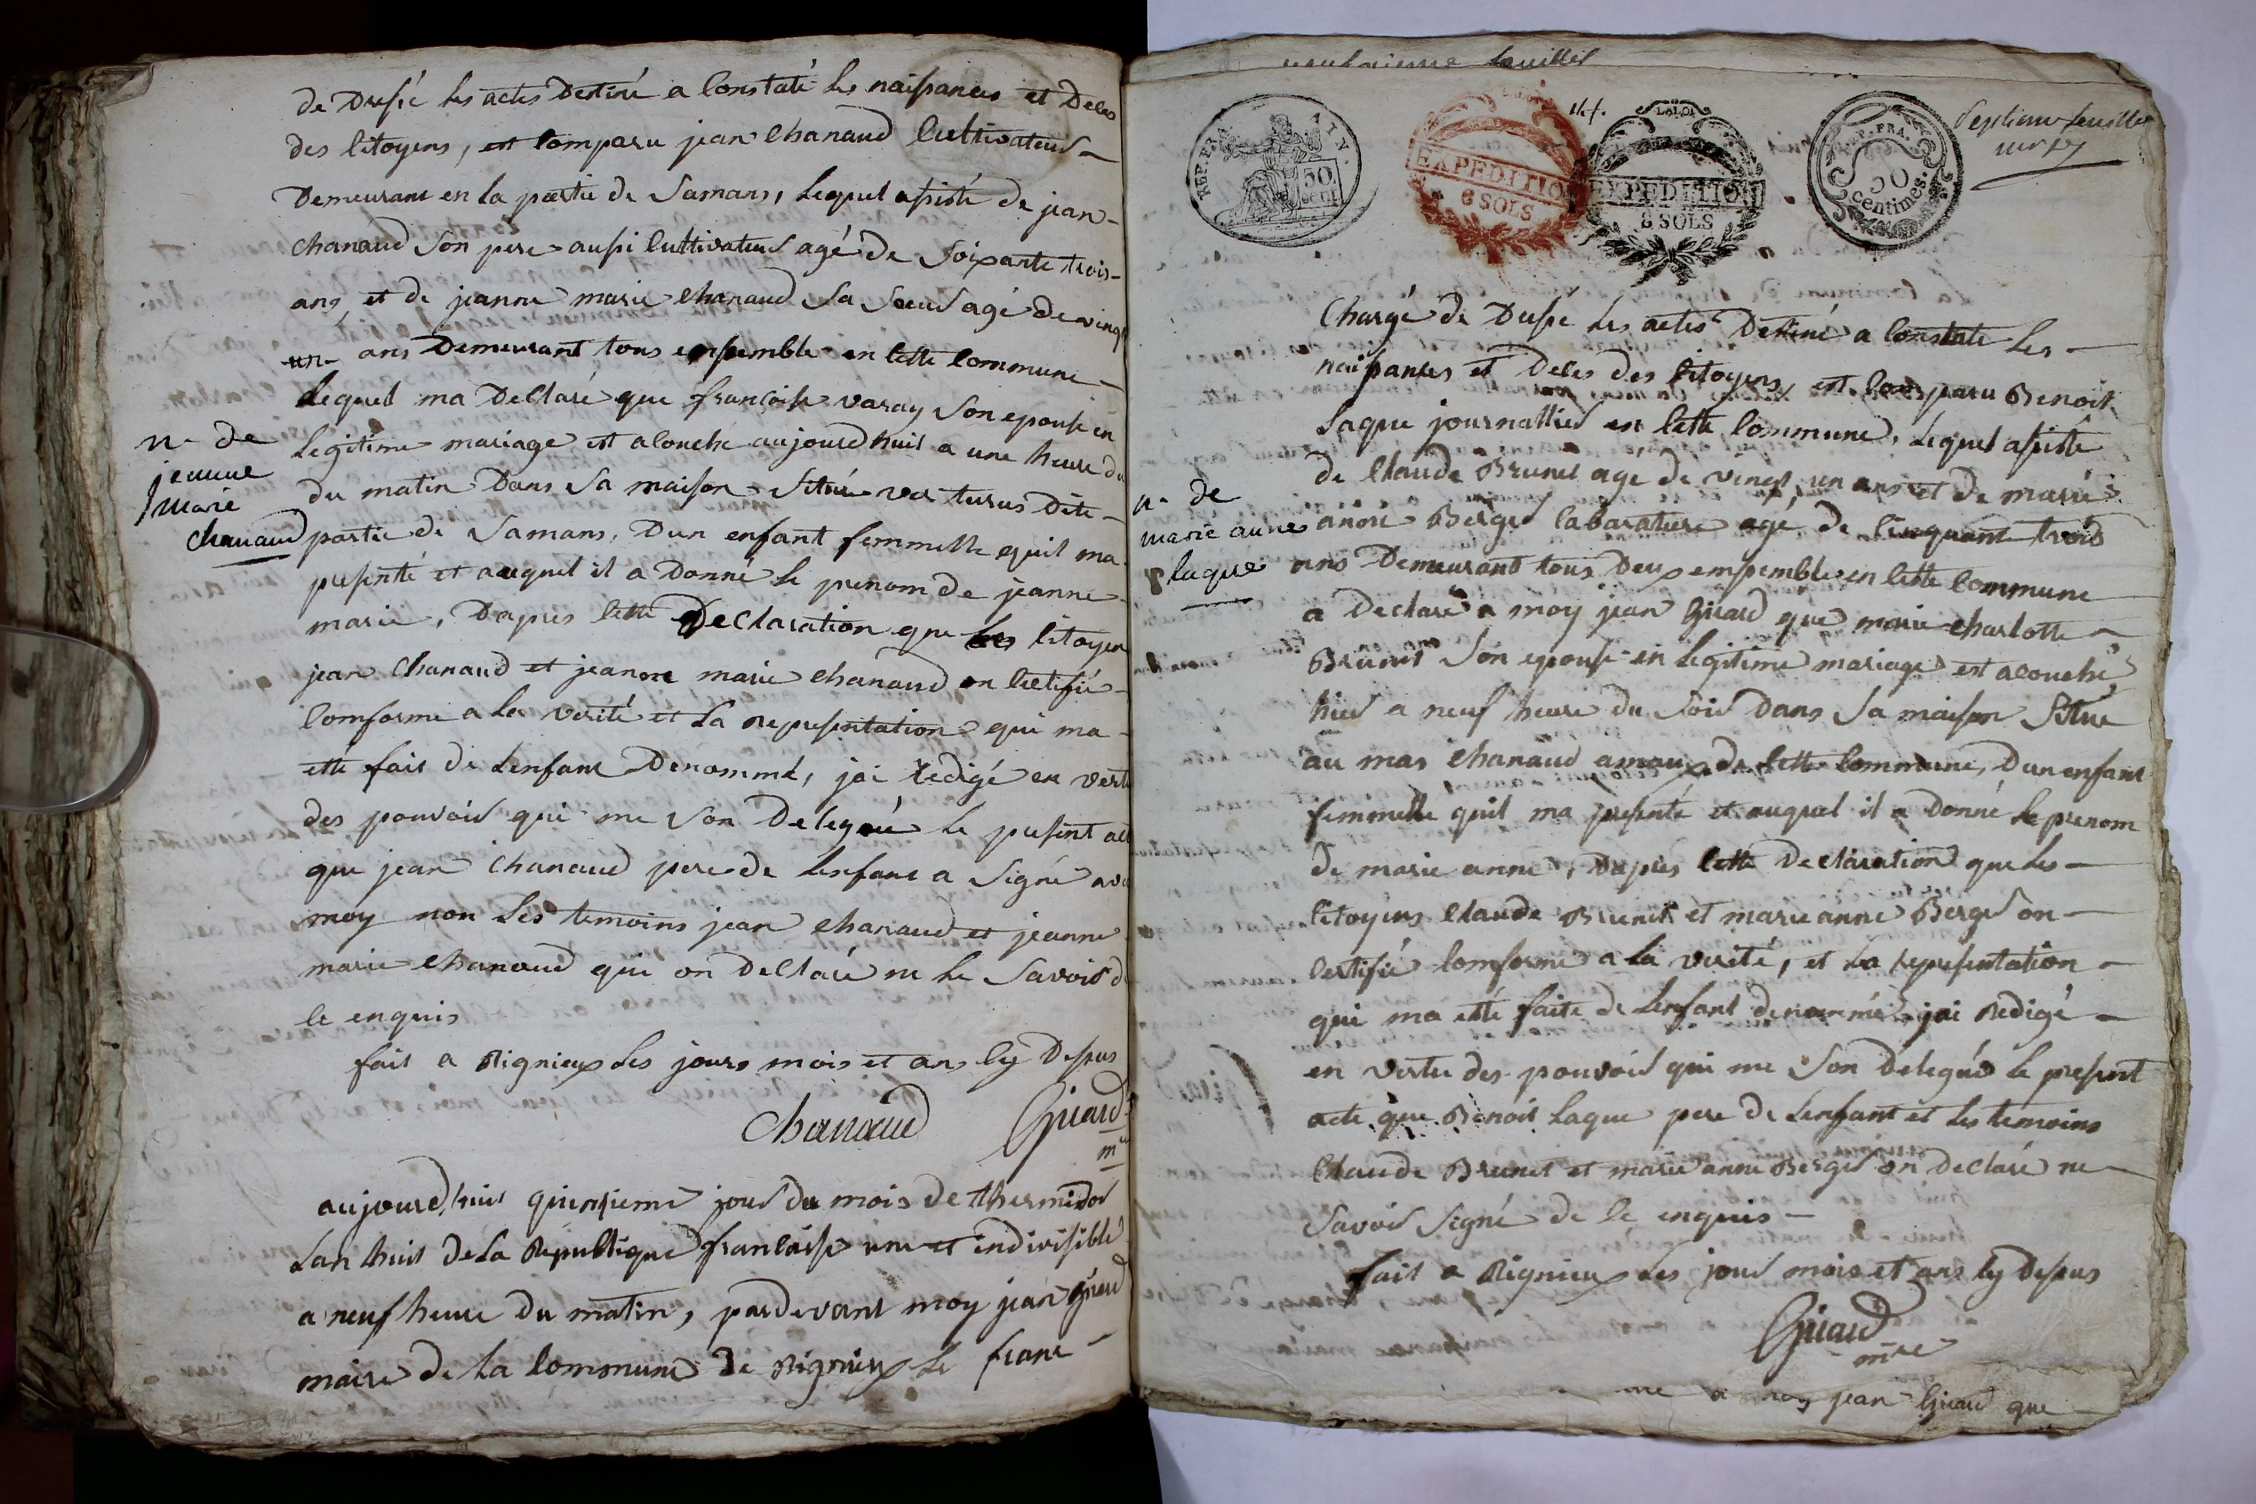 de Dressé les actes Destiné a Constaté les naissances et Deces
des Citoyens, est Comparu jean Chanaud Cultivateur
Demeurant en la partie de Samans, lequel assisté de jean
Chanaud son pere aussi Cultivateur agé de soixante trois
ans, et de jeanne marie Chanaud sa soeur agé de vingt
un ans Demeurant tous ensemble en Cette Commune
lequel ma Declaré que francoise varay son epouse en
legitime mariage est acouché aujourdhuit a une heure du
du matin Dans sa maison situé
partie de Samans, Dun enfant femmelle quil ma
presenté et auquel il a Donné le prenom de jeanne
marie, Dapres Cette Declaration que les Citoyen
jean Chanaud et jeanne marie Chanaud on Certifié
Comforme a la verité et la representation qui ma
etté fait de Lenfant Denommé, jai redigé en vertu
des pouvoir qui me son Delegué le present acte
que jean Chanaud pere de Lenfant a signé avec
moy non les temoins jean Chanaud et jeanne
marie Chanaud qui on Declaré ne le savoir de
ce enquis
fait a Rignieux les jours mois et ans Cy Dessus
Chanaud
Girard
m
n de
jeanne
marie
Chanaud
aujourdhuit quinzieme jour du mois de thermidor
Lan huit de La Republique francaise une et indivisible
a neuf heure du matin, pardevant moy jean Girard
maire de la Commune de Rignieux le franc
septieme feuillet
REP. FRA.
50
CENT
EXPEDITION
6 SOLS
LA LOI
EXPEDITION
6 SOLS
REP. FRA.
50
centimes.
Chargé de Dressé les actes Destiné a Constaté les
naissances et Deces des Citoyens, est Comparu Benoit
Laque journallier en Cette Commune, lequel assisté
de Claude Brunet agé de vingt un ans et de marie
anne Berger labarature agé de Cinquant trois
ans Demeurant tous Deux ensemble en Cette Commune
a Declaré a moy jean Girard que marie Charlotte
Brunet son epouse en legitime mariage est acouché
hier a neuf heure du soir Dans sa maison situé
au mas Chanaud de Cette Commune, Dun enfant
femmelle quil ma presenté et auquel il a Donné le prenom
de marie anne, Dapres Cette Declaration que les
Citoyens Claude Brunet et marie anne Berger on
Certifié Comforme a la verité, et la representation
qui ma etté faite de Lenfant denommé jai Redigé
en vertu des pouvoir qui me son Delegué le present
acte que Benoit Laque pere de Lenfant et les temoins
Claude Brunet et marie anne Berger on Declaré ne
savoir signé de ce enquis
fait a Rignieux les jour mois et ans Cy Dessus
Girard
mre
n de
marie anne
laque
moy jean Girard que